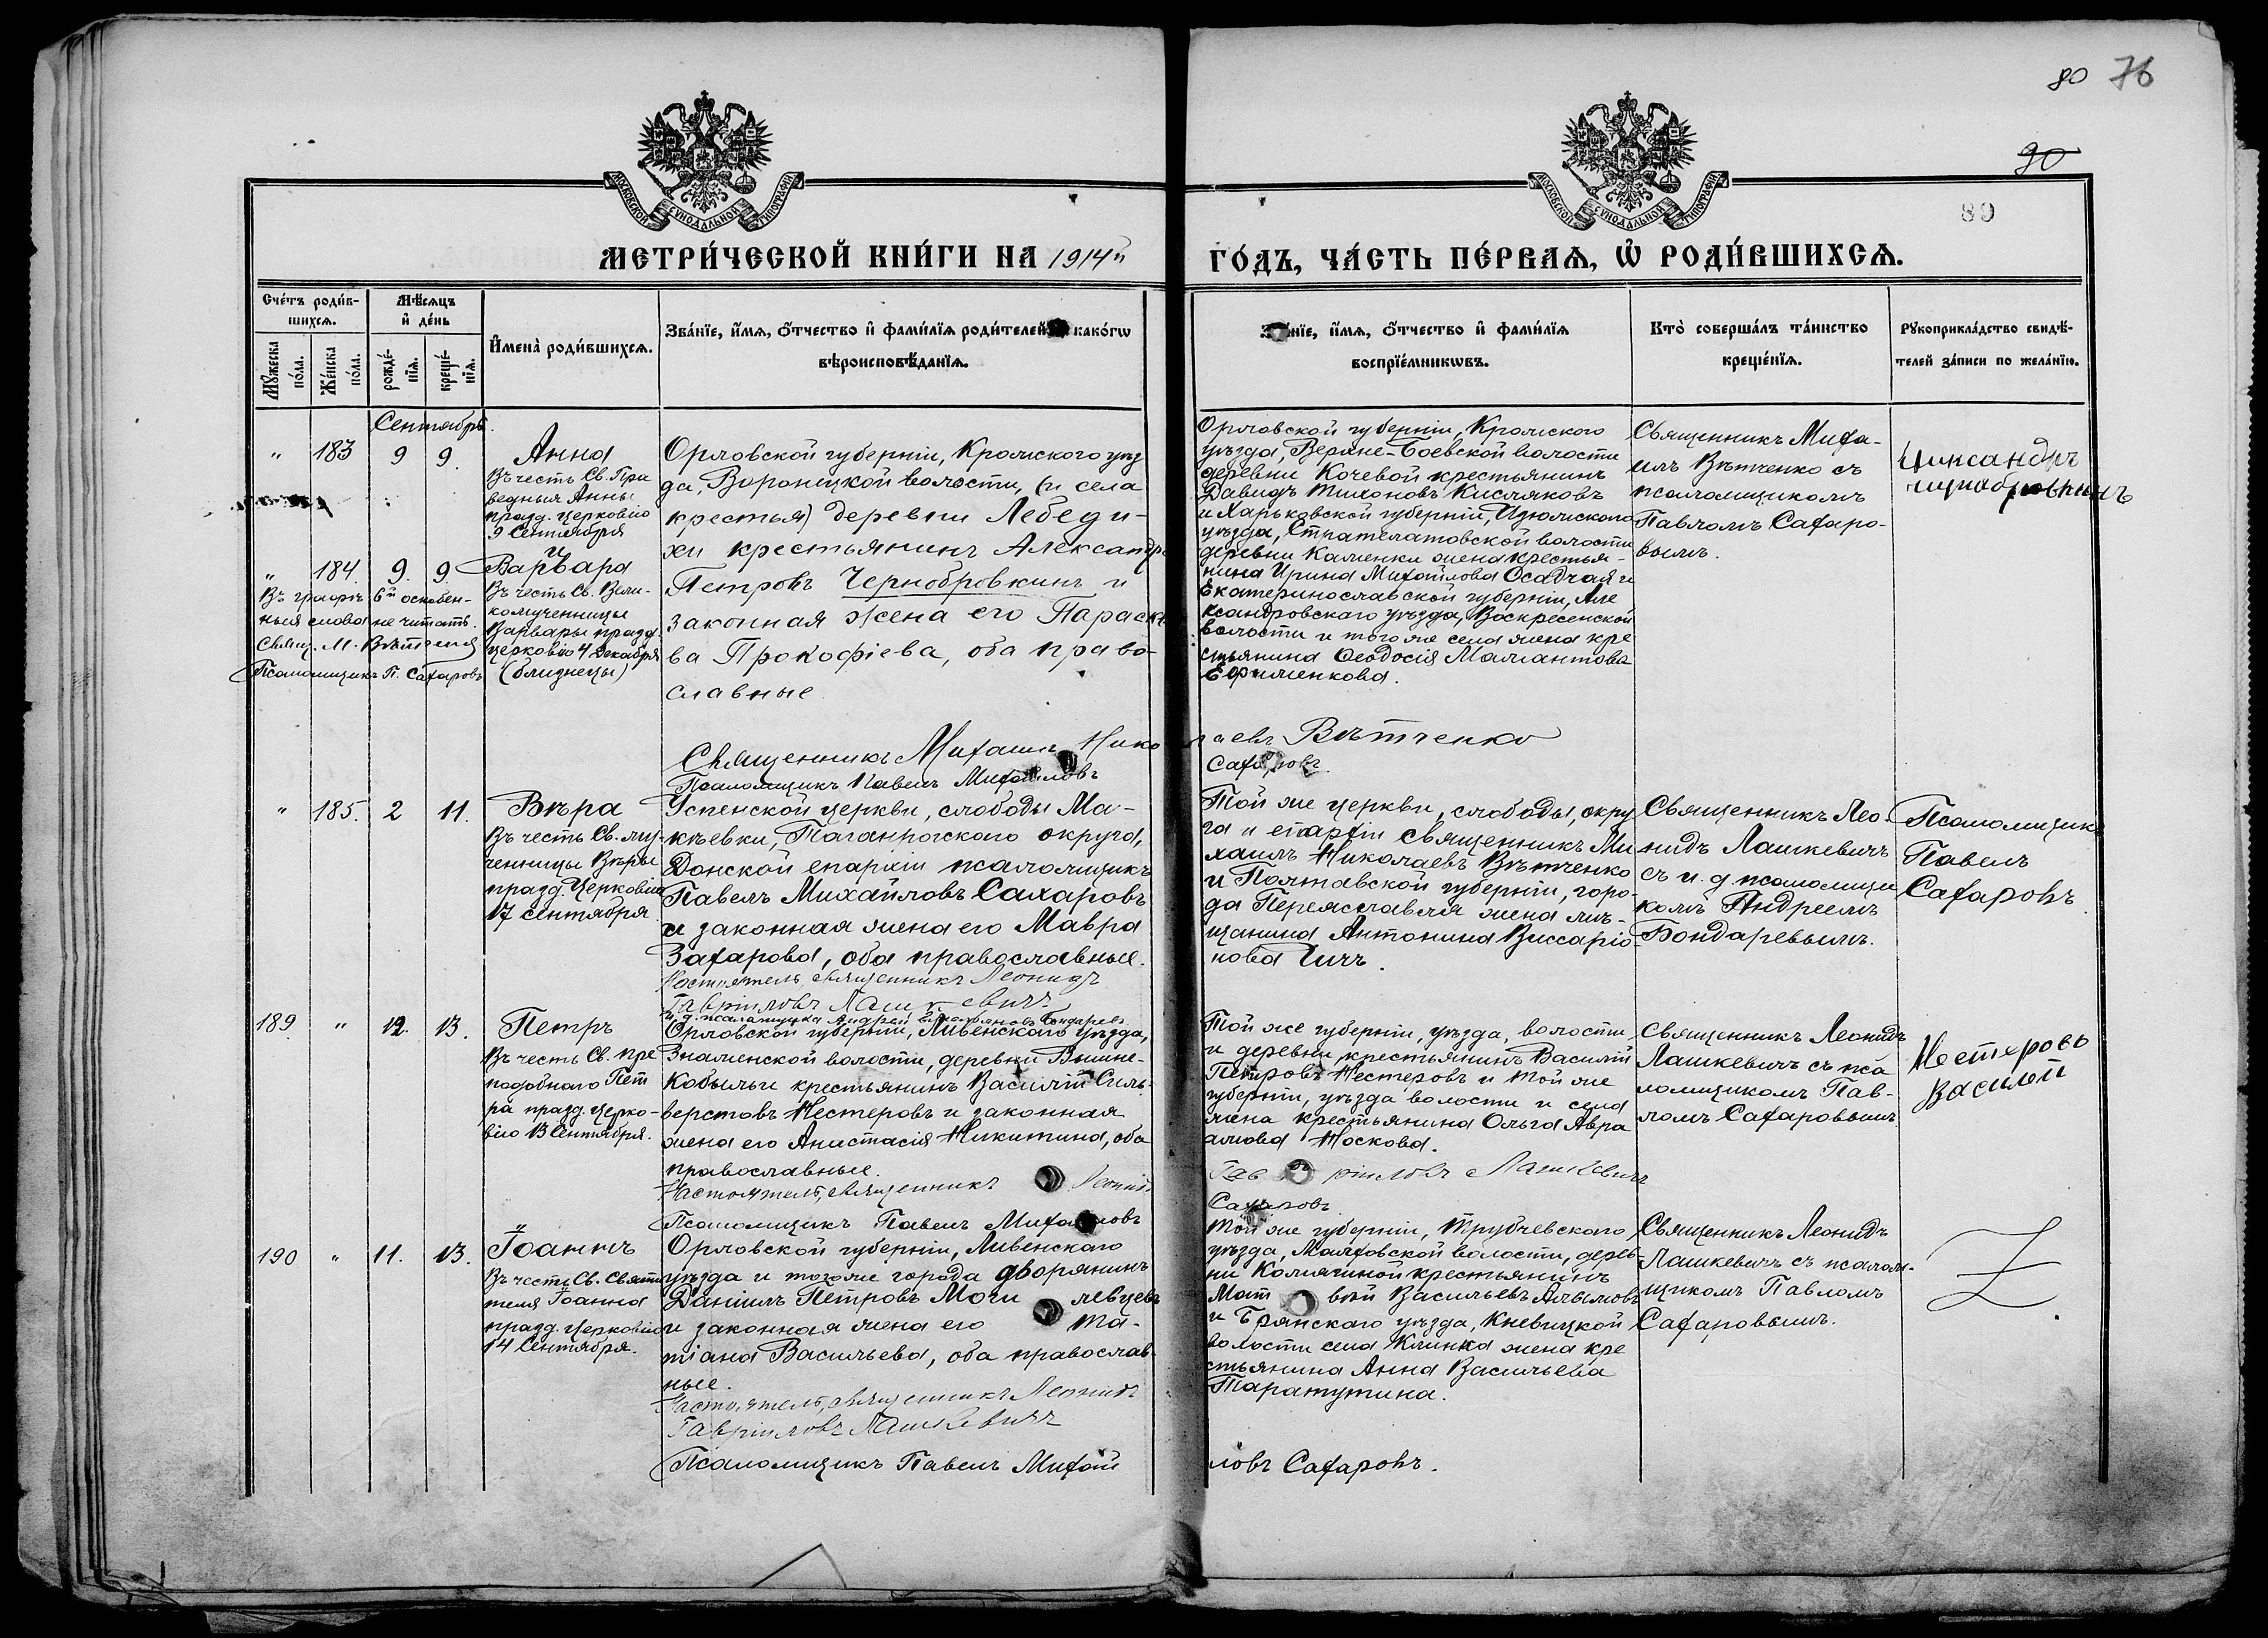 80 76
90
80
МОСКОВСКОЙ СѴНОДАЛЬНОЙ ТИПОГРАФІИ
МОСКОВСКОЙ СѴНОДАЛЬНОЙ ТИПОГРАФІИ
МЕТРИ́ЧЕСКОЙ КНИ́ГИ НА 1914й
ГО́ДЪ, ЧА́СТЬ ПЕ́РВАѦ, Ѡ҆ РОДИ́ВШИХСѦ.
Сче́тъ роди́в-
шихсѧ.
Мꙋ́жеска по́ла.
Же́нска по́ла.
Мѣ́сѧцъ
и҆ де́нь
рожде́-
нїѧ.
креще́-
нїѧ.
И҆мена̀ роди́вшихсѧ.
Зва́нїе, и҆́мѧ, ѻ҆́тчество и҆ фами́лїѧ роди́телей какѡ́гѡ
вѣроисповѣ́данїѧ.
нїе, и҆́мѧ, ѻ҆́тчество и҆ фами́лїѧ
воспрїе́мникѡвъ.
Кто̀ соверша́лъ та́инство
креще́нїѧ.
Рꙋкоприкла́дство свидѣ́-
телей за́писи по жела́нїю.
Сентябрь.
" 183 9 9.
Анна
Въ честь Св. Пра
ведныя Анны
празд. церковію
9 Сентября
и
" 184. 9. 9.
Варвара
Въ честь Св. Вели-
комученницы
Варвары празд.
церковію 4 Декабря
(близнецы)
Въ графѣ 6й оскобен-
ныя слова не читать.
Свящ. М. Вѣтченко
Псаломщикъ П. Сахаровъ
Орловской губерніи, Кромского уѣз
да, Воронецкой волости, (и села
крестья) деревни Лебеди-
хи крестьянинъ Александръ
Петровъ Чернобровкинъ и
законная жена его Параске
ва Прокофіева, оба право-
славные
Орловской губерніи, Кромского
уѣзда, Верхне-Боевской волости
деревни Кочевой крестьянинъ
Давидъ Тихоновъ Кисляковъ
и Харьковской губерніи, Изюмского
уѣзда, Стратилатовской волости
деревни Каменки жена крестья-
нина Ирина Михайлова Осадчая и
Екатеринославской губерніи, Але
ксандровскаго уѣзда, Воскресенской
волости и того же села жена кре
стьянина Ѳеодосія Мамантова
Ефименкова.
Священникъ Миха-
илъ Вѣтченко съ
псаломщикомъ
Павломъ Сахаро-
вымъ.
Священникъ Михаилъ Нико
лаевъ Вѣтченко
Псаломщикъ Павелъ Михайловъ
Сахаровъ.
" 185. 2 11.
Вѣра
Въ честь Св. му-
ченницы Вѣры
празд. Церковію
17 сентября
Успенской церкви, слободы Ма-
кѣевки, Таганрогскаго округа,
Донской епархіи псаломщикъ
Павелъ Михайловъ Сахаровъ
и законная жена его Мавра
Захарова, оба православные.
Настоятель, священникъ Леонидъ
Гавріиловъ Лашкевичъ
и. д. псаломщика Андрей Бондаревъ
Той же церкви, слободы, окру
га и епархіи священникъ Ми
хаилъ Николаевъ Вѣтченко
и Полтавской губерніи, горо-
да Переяславля жена мѣ-
щанина Антонина Виссаріо-
нова Гичъ.
Священникъ Лео-
нидъ Лашкевичъ
съ и. д. псаломщи
комъ Андреемъ
Бондаревымъ.
Псаломщикъ
Павелъ
Сахаровъ
189 " 12. 13.
Петръ
Въ честь Св. Пре
подобнаго Пет
ра празд. Церко-
вію 13 Сентября.
Орловской губерніи, Ливенского уѣзда,
Знаменской волости, деревни Вышне-
Кобыльи крестьянинъ Василій Силь-
верстовъ Нестеровъ и законная
жена его Анастасія Никитина, оба
православные.
Настоятель, священникъ Леонидъ
Гавріиловъ Лашкевичъ
Псаломщикъ Павелъ Михайловъ
Сахаровъ
Той же губерніи, уѣзда, волости
и деревни крестьянинъ Василій
Петровъ Нестеровъ и той же
губерніи, уѣзда волости и села
жена крестьянина Ольга Авра
амова Носкова.
Священникъ Леонидъ
Лашкевичъ съ пса
ломщикомъ Пав-
ломъ Сахаровымъ
Нестерово
Василей
190 " 11. 13.
Іоаннъ
Въ честь Св. Святи
теля Іоанна
празд. Церковію
14 Сентября.
Орловской губерніи, Ливенскаго
уѣзда и того же города дворянинъ
Даніилъ Петровъ Моги левцевъ
и законная жена его Та-
тіана Васильева, оба православ-
ные.
Настоятель, священникъ Леонидъ
Гавріиловъ Лашкевичъ
Псаломщикъ Павелъ Михай
ловъ Сахаровъ.
Той же губерніи, Трубчевскаго
уѣзда, Малфовской волости, дерев-
ни Комягиной крестьянинъ
Мат вѣй Васильевъ Алымовъ
и Брянскаго уѣзда, Княвицкой
волости села Клинка жена кре
стьянина Анна Васильева
Таратутина.
Священникъ Леонидъ
Лашкевичъ съ псалом-
щикомъ Павломъ
Сахаровымъ.